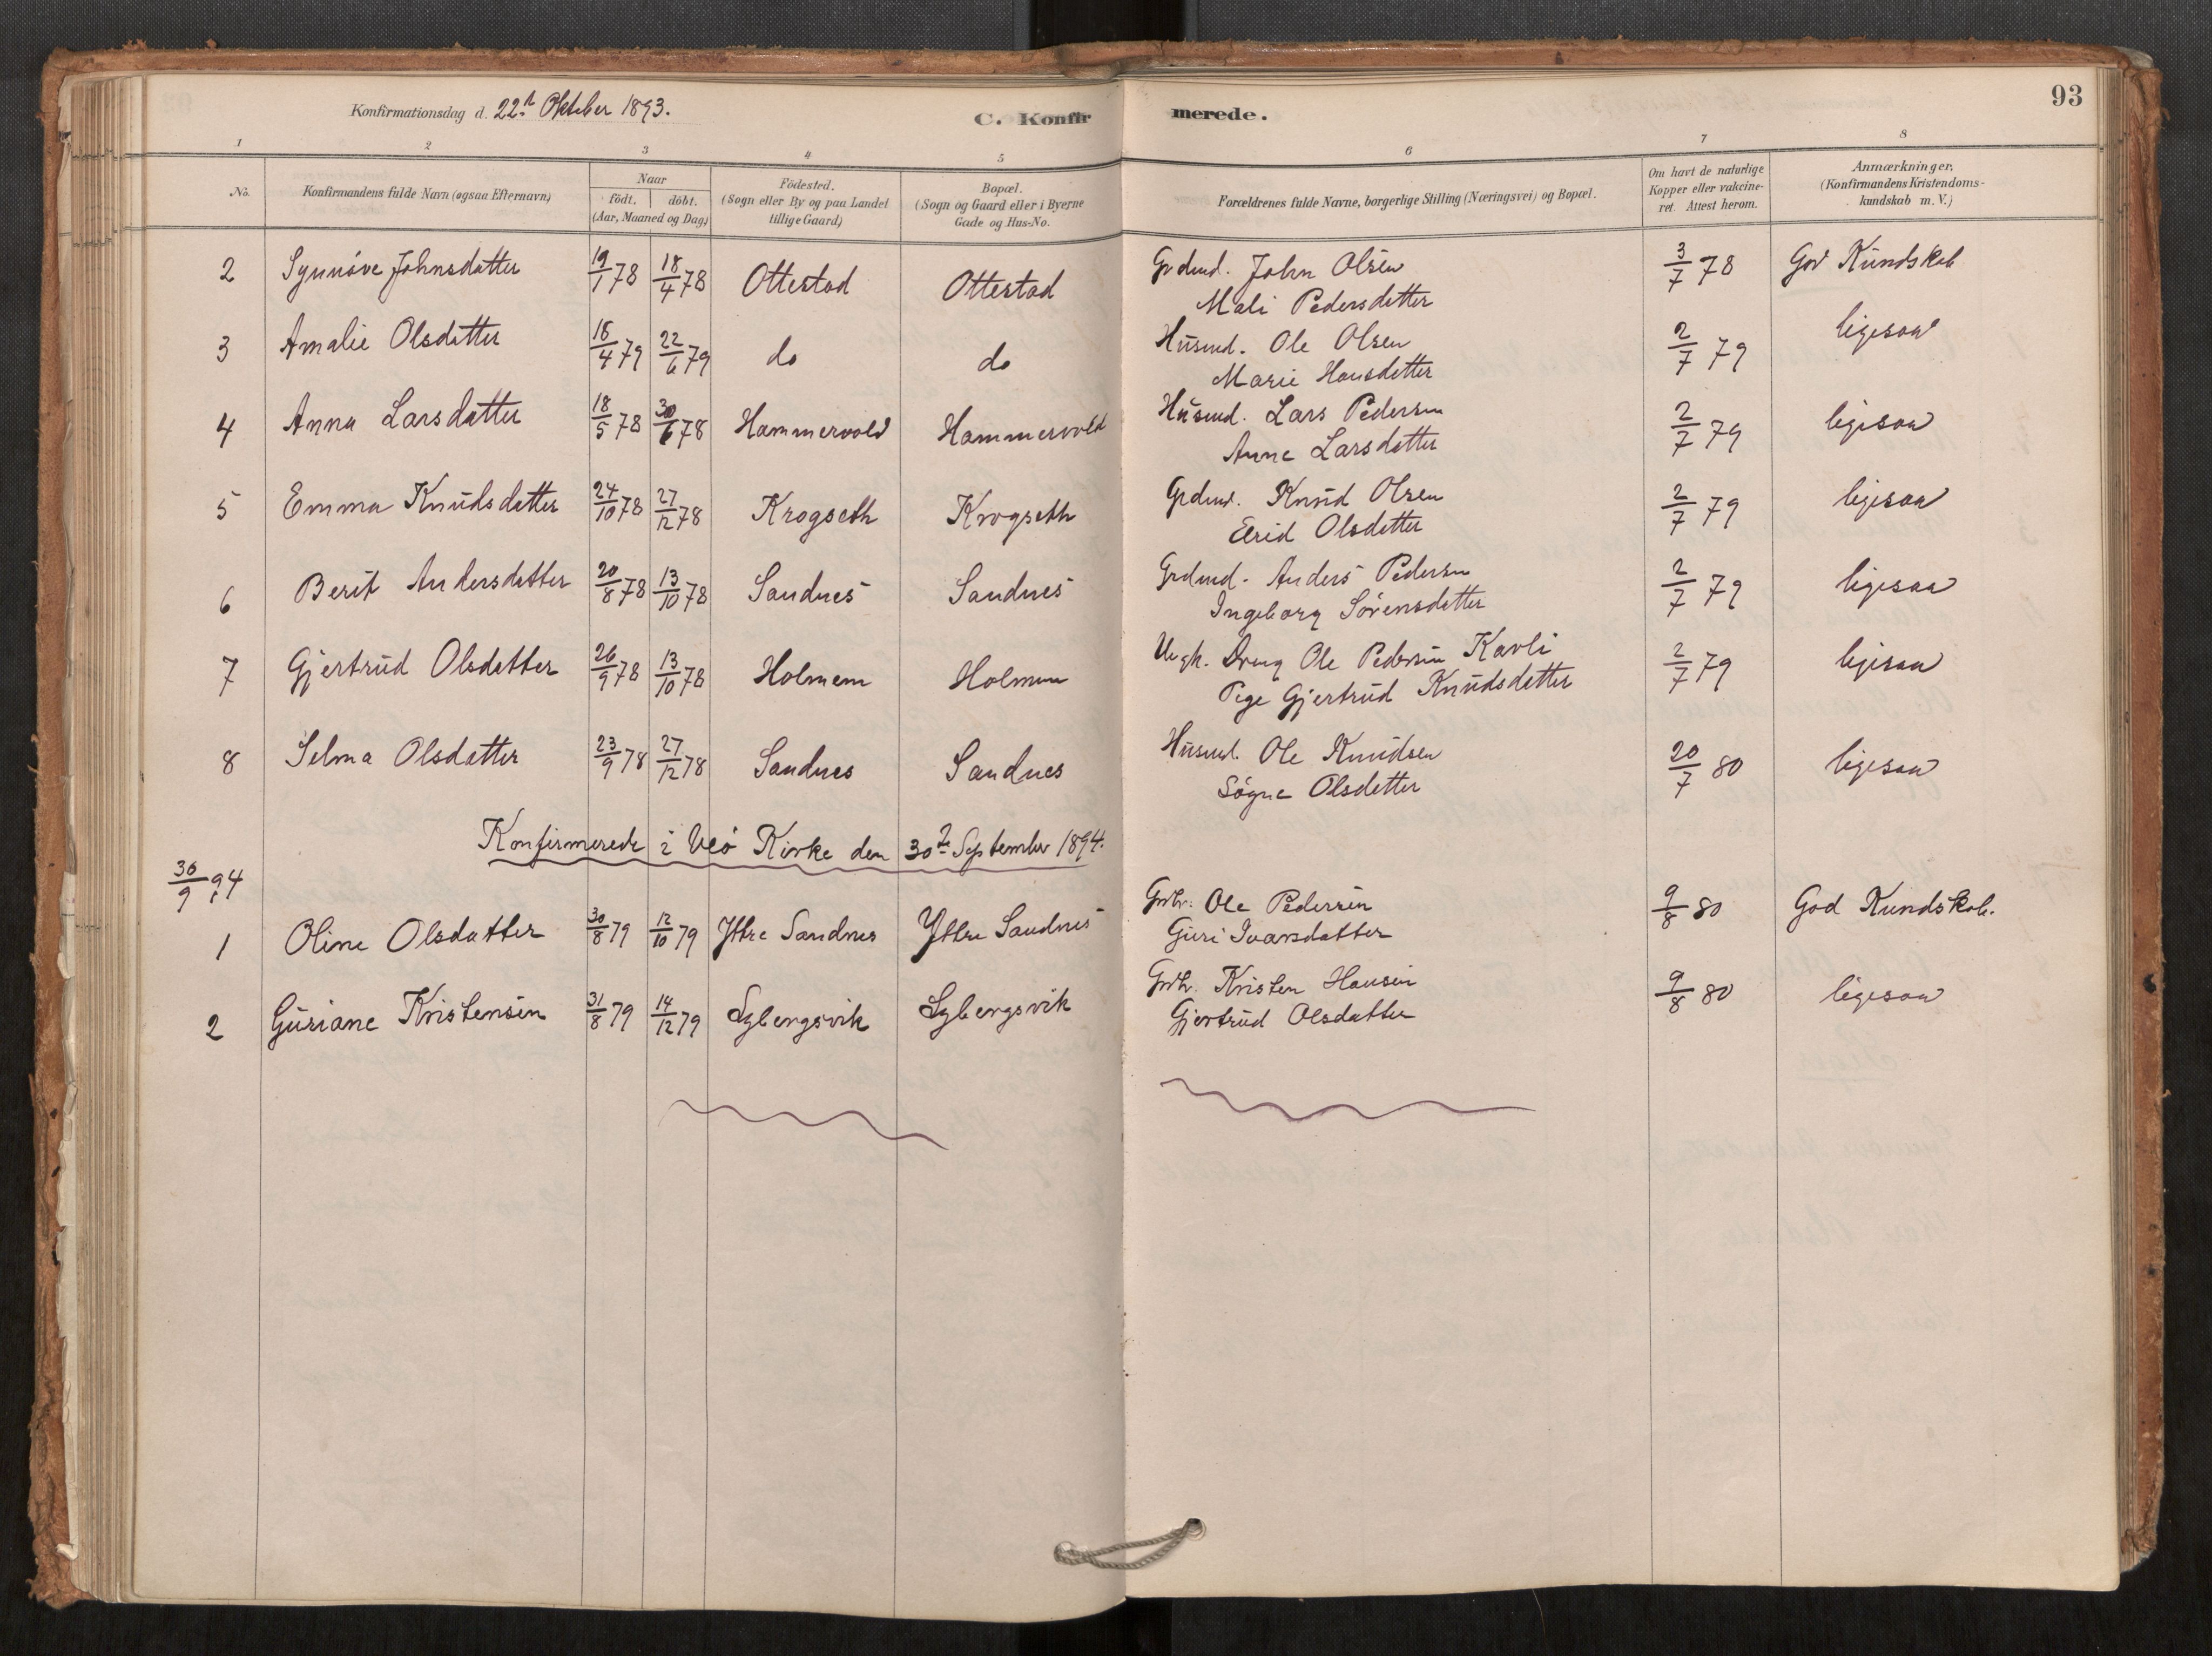 Konfirmationsdag d. 22n Oktober 1893.
C. Konfirmerede.
93
1 2 3 4 5 6 7 8
No. Konfirmandens fulde Navn (ogsaa Efternavn) Naar født. døbt. (Aar, Maaned og Dag) Födested. (Sogn eller By og paa Landet tillige Gaard) Bopæl. (Sogn og Gaard eller i Byerne Gade og Hus-No. Forældrenes fulde Navne, borgerlige Stilling (Næringsvei) og Bopæl. Om havt de naturlige Kopper eller vakcineret. Attest herom. Anmærkninger, (Konfirmandens Kristendomskundskab m. V.)
2 Synnøve Johnsdatter 19/1 78 18/4 78 Ottestad Ottestad Grdmd. John Olsen 3/7 78 God Kundskab
Mali Pedersdatter
3 Amalie Olsdatter 18/4 79 22/6 79 do do Husmd. Ole Olsen 2/7 79 ligesaa
Marie Hansdatter
4 Anna Larsdatter 18/5 78 30/6 78 Hammervold Hammervold Husmd. Lars Pedersen 2/7 79 ligesaa
Anne Larsdatter
5 Emma Knudsdatter 24/10 78 27/12 78 Krogseth Krogseth Grdmd. Knud Olsen 2/7 79 ligesaa
Olsdatter
6 Berit Andersdatter 20/8 78 13/10 78 Sandnes Sandnes Grdmd. Anders Pedersen 2/7 79 ligesaa
Ingeborg Sørensdatter
7 Gjertrud Olsdatter 26/9 78 13/10 78 Holmem Holmem Ungk. Dreng Ole Pedersen Kavli 2/7 79 ligesaa
Pige Gjertrud Knudsdatter
8 Selma Olsdatter 23/9 78 27/12 78 Sandnes Sandnes Husmd. Ole Knudsen 20/7 80 ligesaa
Søgne Olsdatter
Konfirmerede i Veö Kirke den 30te September 1894.
30/9 94
1 Oline Olsdatter 30/8 79 12/10 79 Yttre Sandnes Yttre Sandnes Grbr. Ole Pedersen 9/8 80 God Kundskab.
Guri Ivarsdatter
2 Guriane Kristensen 31/8 79 14/12 79 Lybergsvik Lybergsvik Grbr. Kristen Hansen 9/8 80 ligesaa
Gjertrud Olsdatter